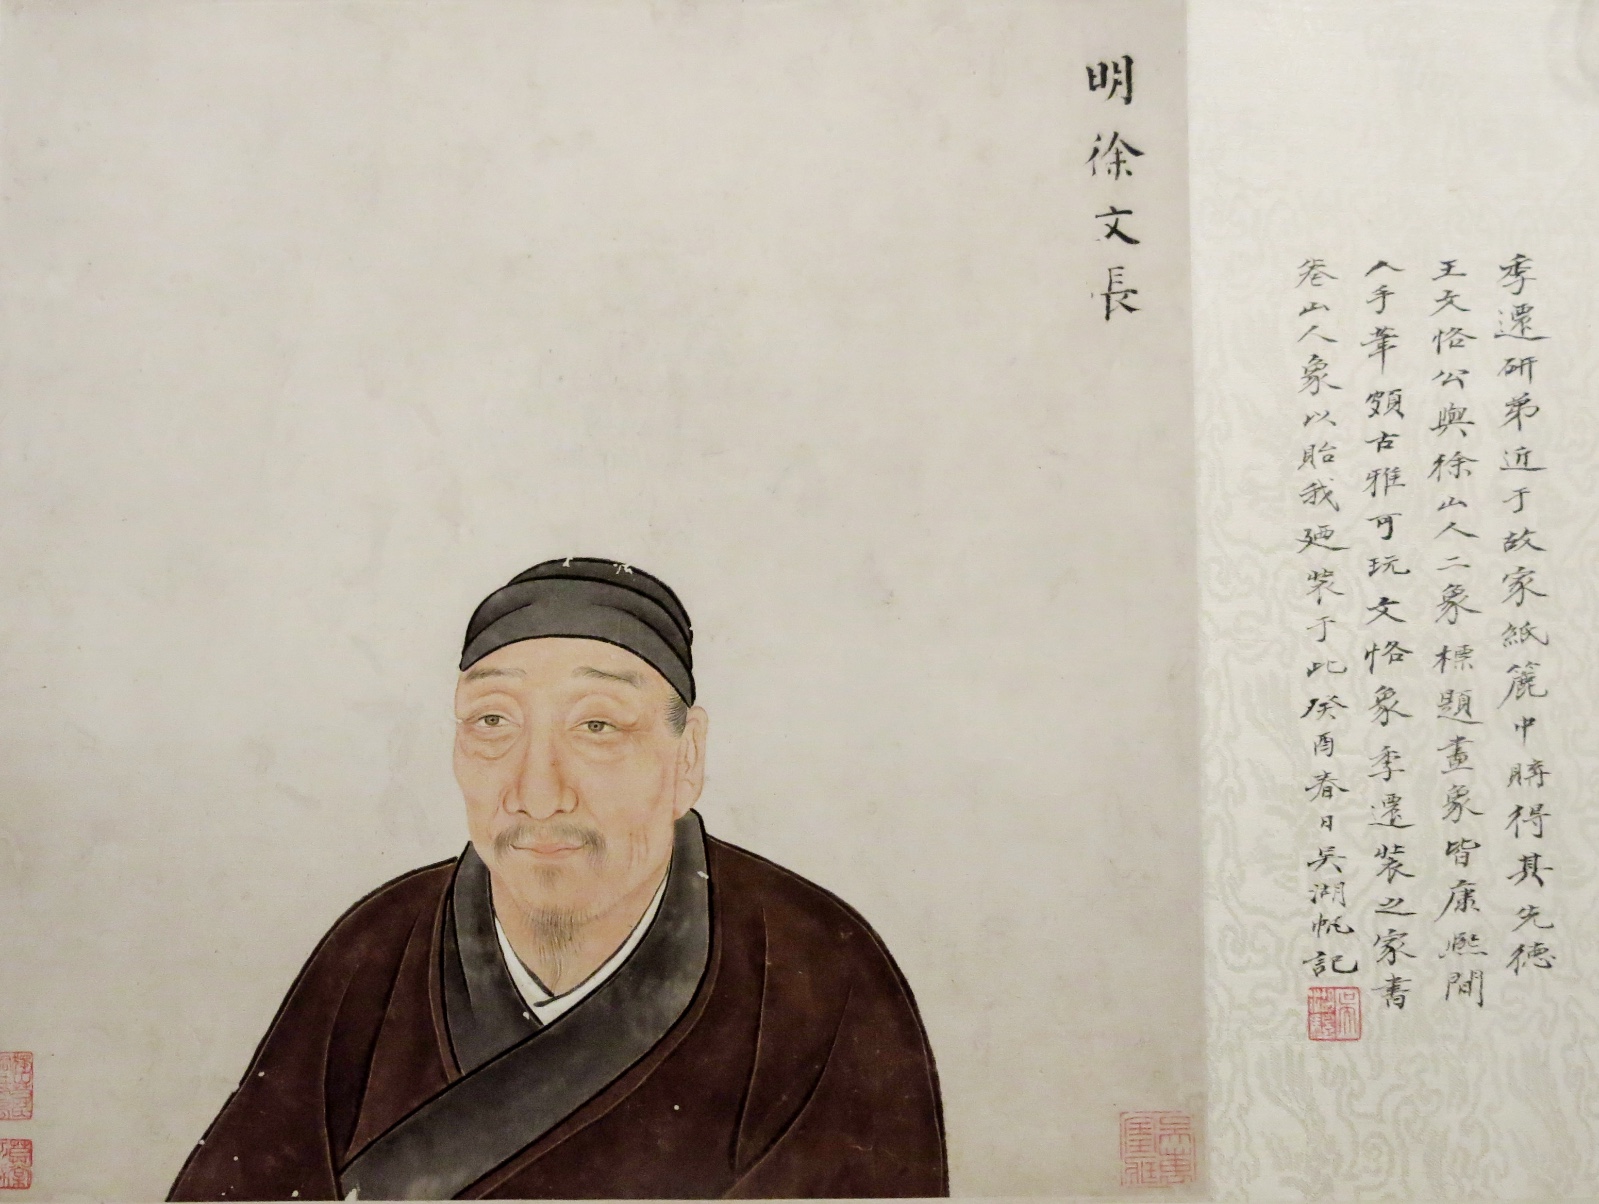 季遷研弟近于故家紙簏中賸得其先德
王文恪公與徐山人二象標題畫象皆康熙間
人手筆頗古雅可玩文恪象季遷裝之家書
卷山人象以貽我廼裝于此癸酉春日吳湖帆記
明徐文長